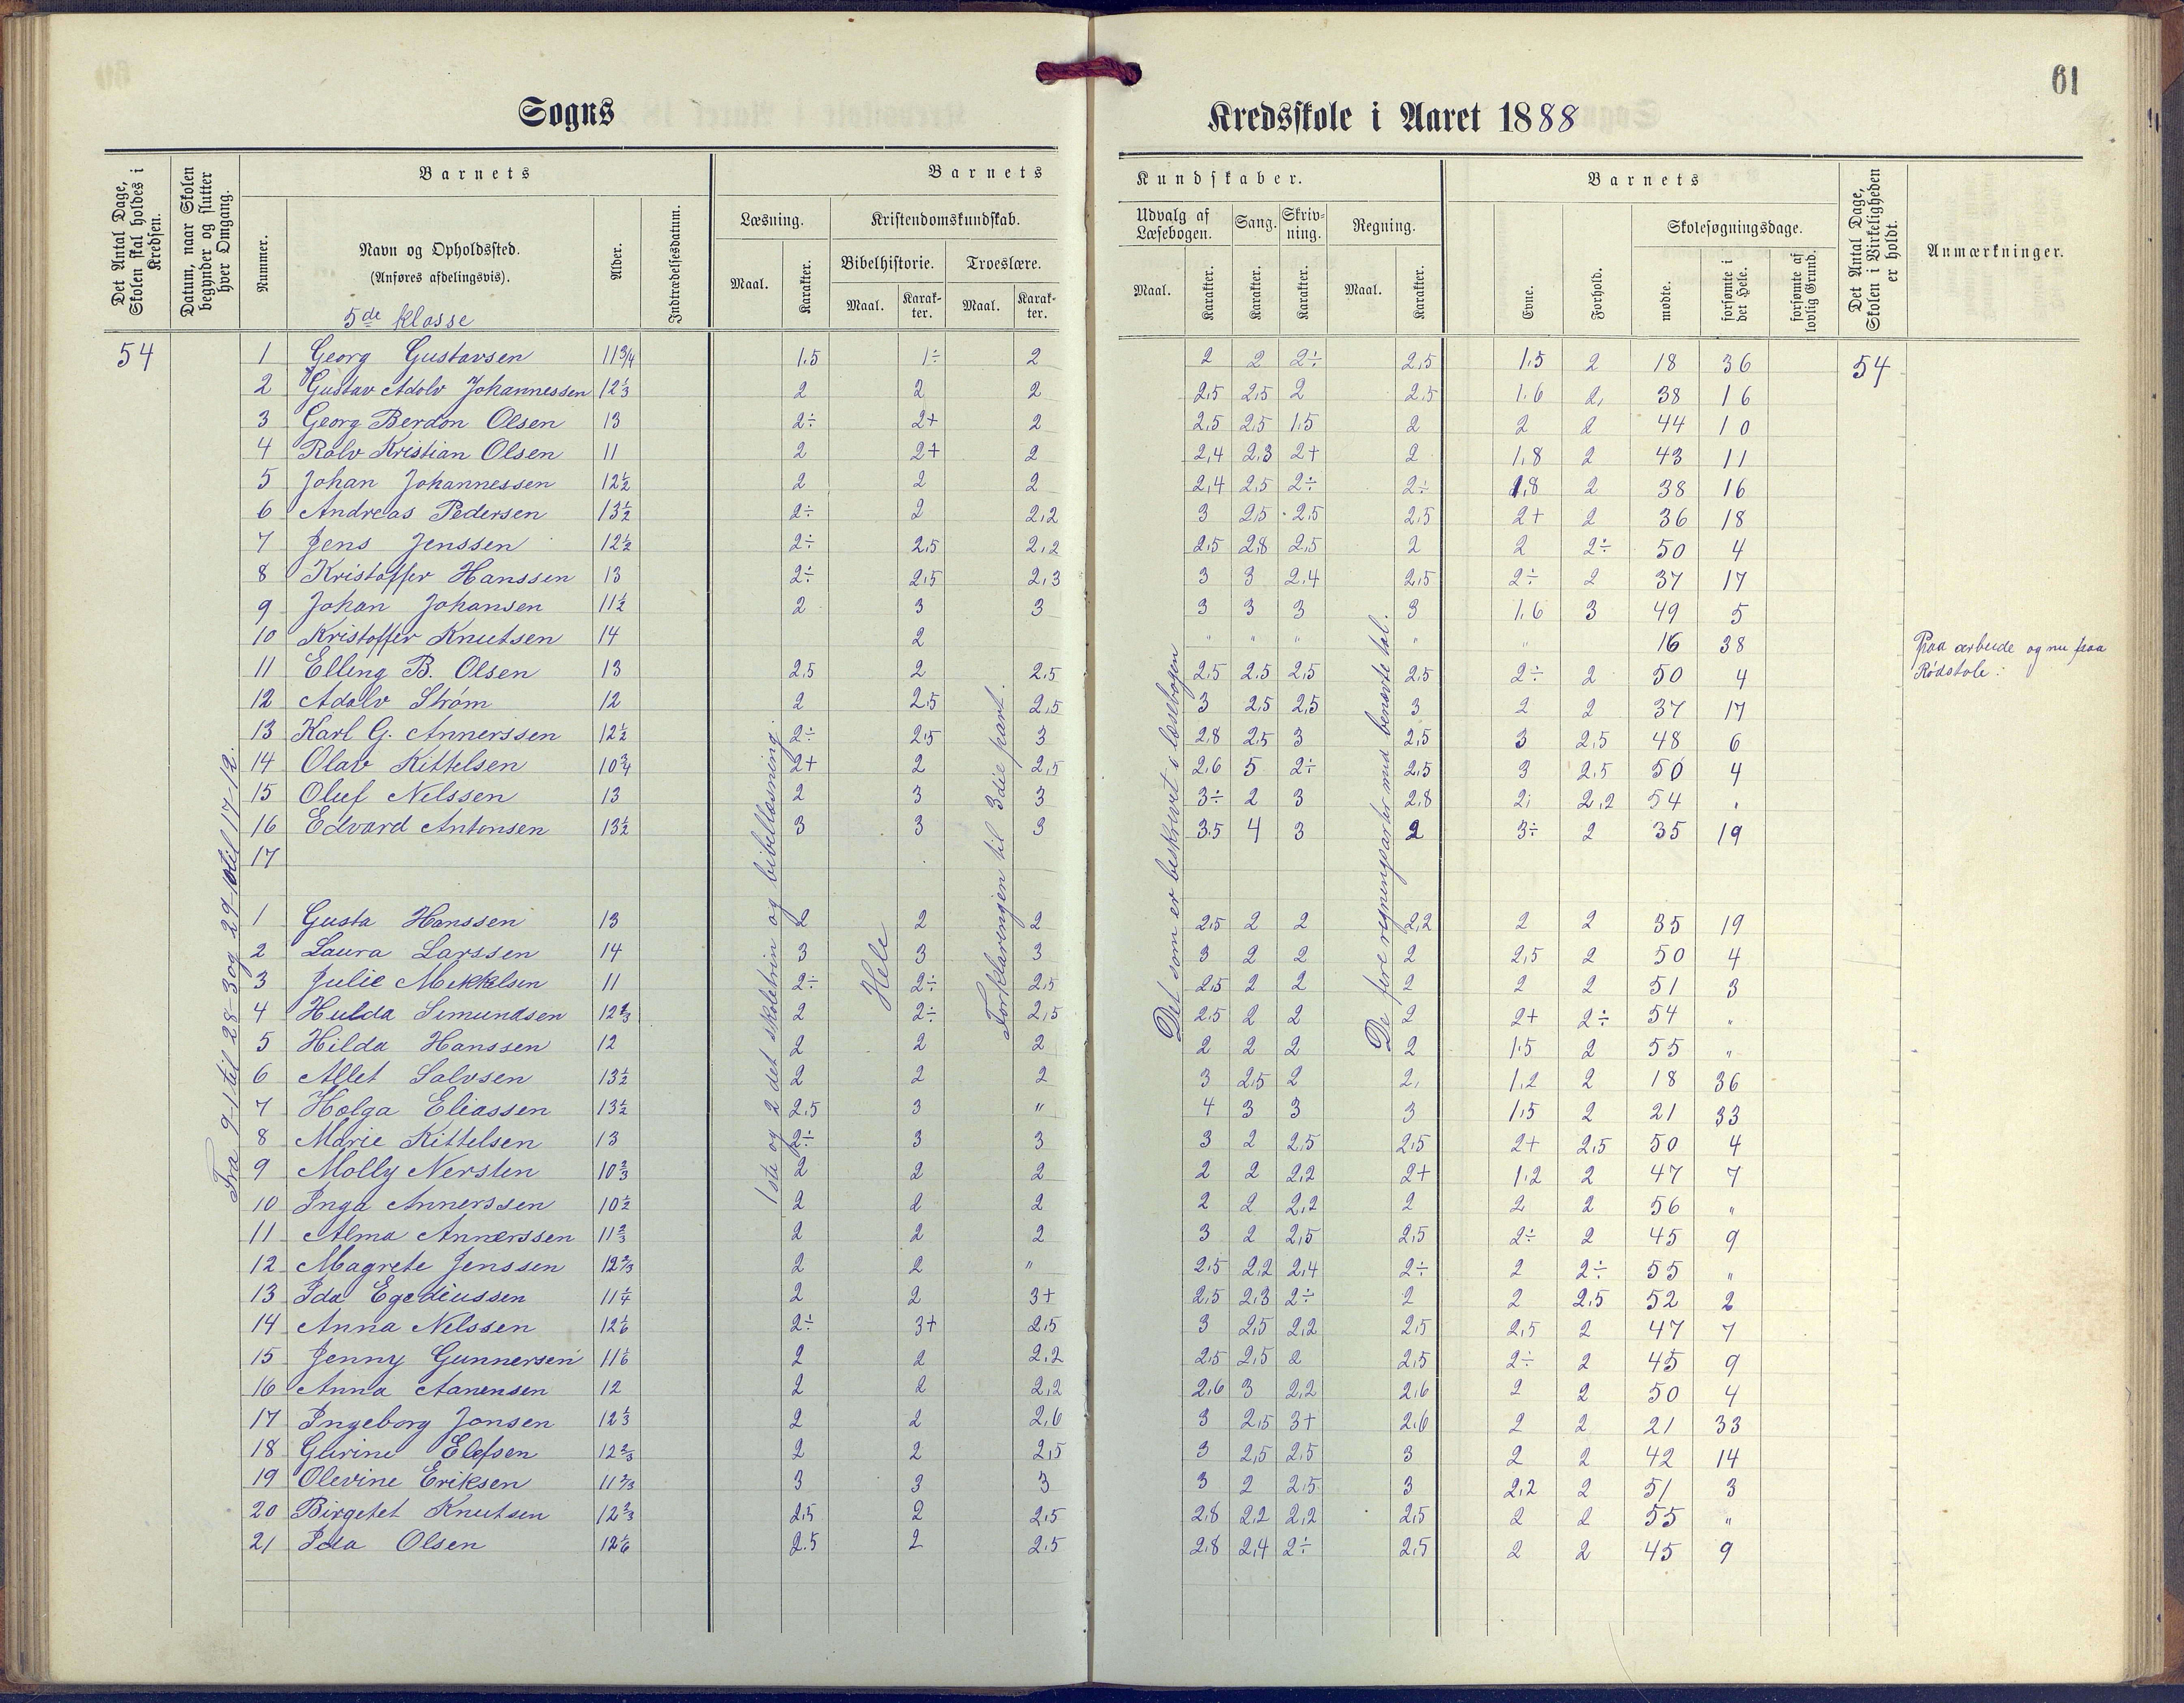 61
Sogns Kredsskole i Aaret 1888
Det Antal Dage, Skolen skal holdes i Kredsen.
Datum, naar Skolen begynder og slutter hver Omgang.
Barnets
Nummer.
Navn og Opholdssted.
(Anføres afdelingsvis).
5de klasse
Alder.
Indtrædelsesdatum.
Barnets Kundskaber.
Læsning.
Maal.
Karakter.
Kristendomskundskab.
Bibelhistorie.
Maal.
Karakter.
Troeslære.
Maal.
Karakter.
Udvalg af Læsebogen.
Maal.
Karakter.
Sang.
Karakter.
Skrivning.
Karakter.
Regning.
Maal.
Karakter.
Barnets
Evne.
Forhold.
Skolesøgningsdage.
mødte.
forsømte i det Hele.
forsømte af lovlig Grund.
Det Antal Dage, Skolen i Virkeligheden er holdt.
Anmærkninger.
54 1 Georg Gustavsen 11 3/4 1.5 1÷ 2 2 2 2÷ 2,5 1,5 2 18 36 54
2 Gustav Adolv Johannessen 12 1/3 2 2 2 2,5 2,5 2 2,5 1.6 2, 38 16
3 Georg Berdon Olsen 13 2÷ 2+ 2 2,5 2,5 1,5 2 2 2 44 10
4 Rolv Kristian Olsen 11 2 2+ 2 2,4 2,3 2+ 2 1,8 2 43 11
5 Johan Johannessen 12 1/2 2 2 2 2,4 2,5 2÷ 2÷ 1,8 2 38 16
6 Andreas Pedersen 13 1/2 2÷ 2 2,2 3 2,5 2,5 2,5 2+ 2 36 18
7 Jens Jenssen 12 1/2 2÷ 2,5 2,2 2,5 2,8 2,5 2 2 2÷ 50 4
8 Kristoffer Hanssen 13 2÷ 2,5 2,3 3 3 2,4 2,5 2÷ 2 37 17
9 Johan Johansen 11 1/2 2 3 3 3 3 3 3 1,6 3 49 5
10 Kristoffer Knutsen 14 2 " " " " " 16 38 Paa arbeide og nu paa
Rødskole.
11 Elling B. Olsen 13 2,5 2 2,5 2,5 2,5 2,5 2,5 2÷ 2 50 4
12 Adolv Strøm 12 2 2,5 2,5 3 2,5 2,5 3 2 2 37 17
13 Karl G. Annerssen 12 1/2 2÷ 2,5 3 2,8 2,5 3 2,5 3 2,5 48 6
14 Olav Kittelsen 10 3/4 2+ 2 2,5 2,6 5 2÷ 2,5 3 2,5 50 4
15 Oluf Nelssen 13 2 3 3 3÷ 2 3 2,8 2, 2,2 54 ,
16 Edvard Antonsen 13 1/2 3 3 3 3,5 4 3 2 3÷ 2 35 19
17
1 Gusta Hanssen 13 2 2 2 2,5 2 2 2,2 2 2 35 19
2 Laura Larssen 14 3 3 3 3 2 2 2 2,5 2 50 4
3 Julie Mekkelsen 11 2÷ 2÷ 2,5 2,5 2 2 2 2 2 51 3
4 Hulda Simundsen 12 2/3 2 2÷ 2,5 2,5 2 2 2 2+ 2÷ 54 "
5 Hilda Hanssen 12 2 2 2 2 2 2 2 1,5 2 55 "
6 Allet Salvsen 13 1/2 2 2 2 3 2,5 2 2, 1,2 2 18 36
7 Holga Eliassen 13 1/2 2,5 3 " 4 3 3 3 1,5 2 21 33
8 Marie Kittelsen 13 2÷ 3 3 3 2 2,5 2,5 2+ 2,5 50 4
9 Molly Nersten 10 2/3 2 2 2 2 2 2,2 2+ 1,2 2 47 7
10 Inga Annerssen 10 1/2 2 2 2 2 2 2,2 2 2 2 56 "
11 Alma Annerssen 11 2/3 2 2 2 3 2 2,5 2,5 2÷ 2 45 9
12 Magrete Jenssen 12 2/3 2 2 " 2,5 2,2 2,4 2÷ 2 2÷ 55 "
13 Ida Egediussen 11 1/4 2 2 3+ 2,5 2,3 2÷ 2 2 2,5 52 2
14 Anna Nelssen 12 1/6 2÷ 3+ 2,5 3 2,5 2,2 2,5 2,5 2 47 7
15 Jenny Gunnersen 11 1/6 2 2 2,2 2,5 2,5 2 2,5 2÷ 2 45 9
16 Anna Aanensen 12 2 2 2,2 2,6 3 2,2 2,6 2 2 50 4
17 Ingeborg Jonsen 12 1/3 2 2 2,6 3 2,5 3+ 2,6 2 2 21 33
18 Gurine Elefsen 12 2/3 2 2 2,5 3 2,5 2,5 3 2 2 42 14
19 Olevine Eriksen 11 2/3 3 3 3 3 2 2,5 3 2,2 2 51 3
20 Birgetet Knutsen 12 2/3 2,5 2 2,5 2,8 2,2 2,2 2,5 2 2 55 "
21 Ida Olsen 12 1/6 2.5 2 2,5 2,8 2,4 2÷ 2,5 2 2 45 9
Fra 9-1 til 28-3 og 29-10 til 17-12.
1ste og 2det skoletrin og bibellæsning.
Hele
Forklaringen til 3die part.
Det som er beskrevet i læsebogen
De fire regningsarter med benævte tal.